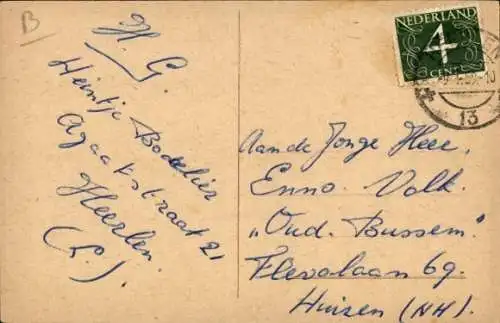 B
H. G.
Heintje Bodelier
Agaatstraat 21
Heerlen
(L.).
NEDERLAND
4
CENT
13
Aan de Jonge Heer,
Enno Volk.
„Oud. Bussem"
Flevolaan 69.
Huizen (NH).